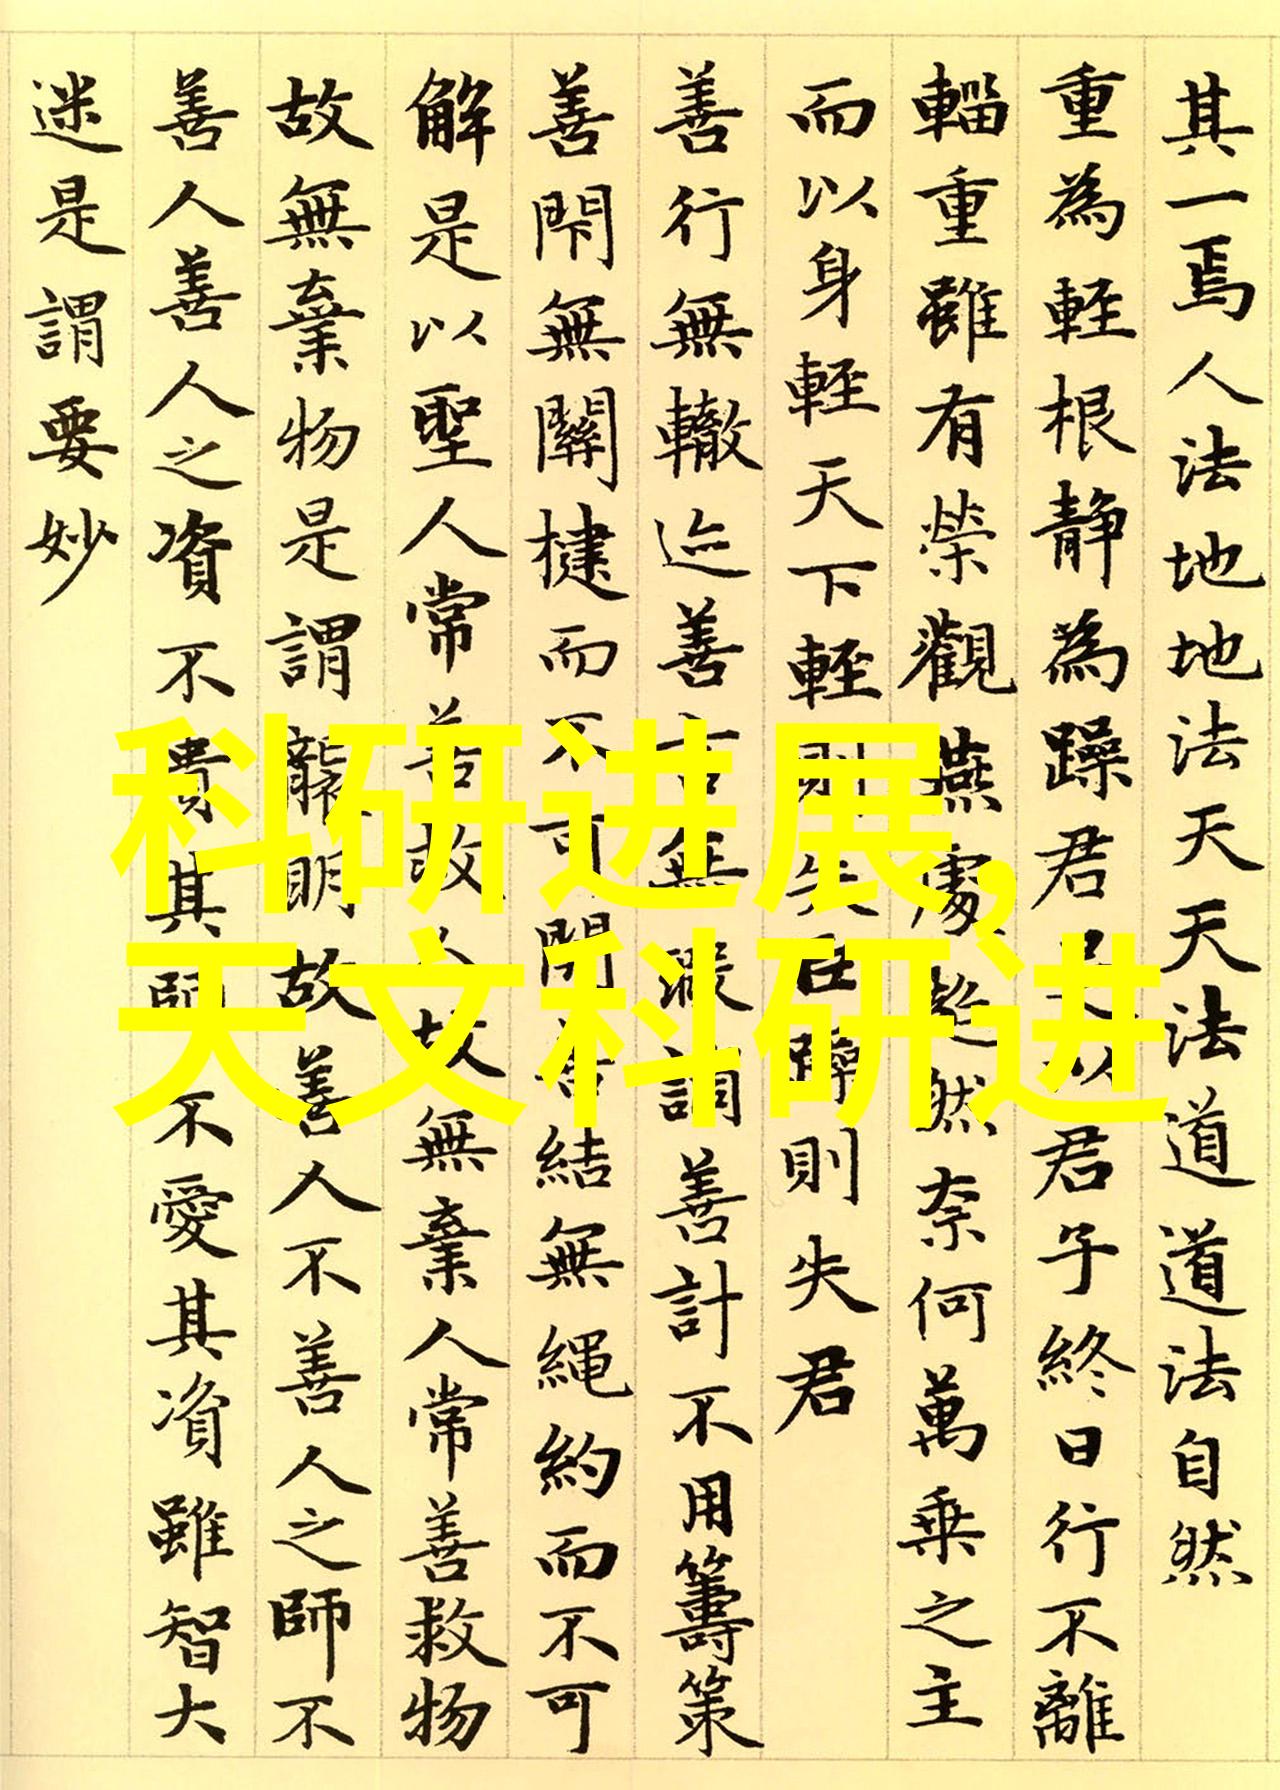 其一焉人法地地法天天法道道法自然
重為輕根静為躁君是以君子終日行不離
輜重雖有榮觀燕處超然奈何萬乘之主
而以身輕天下輕則失臣躁則失君
善行無轍迹善言無瑕謫善計不用籌策
善閇無關楗而不可開善結無繩約而不可
解是以聖人常善救人故無棄人常善救物
故無棄物是謂襲明故善人不善人之師不
善人善人之資不貴其師不愛其資雖智大
迷是謂要妙
科研进展,
天文科研进